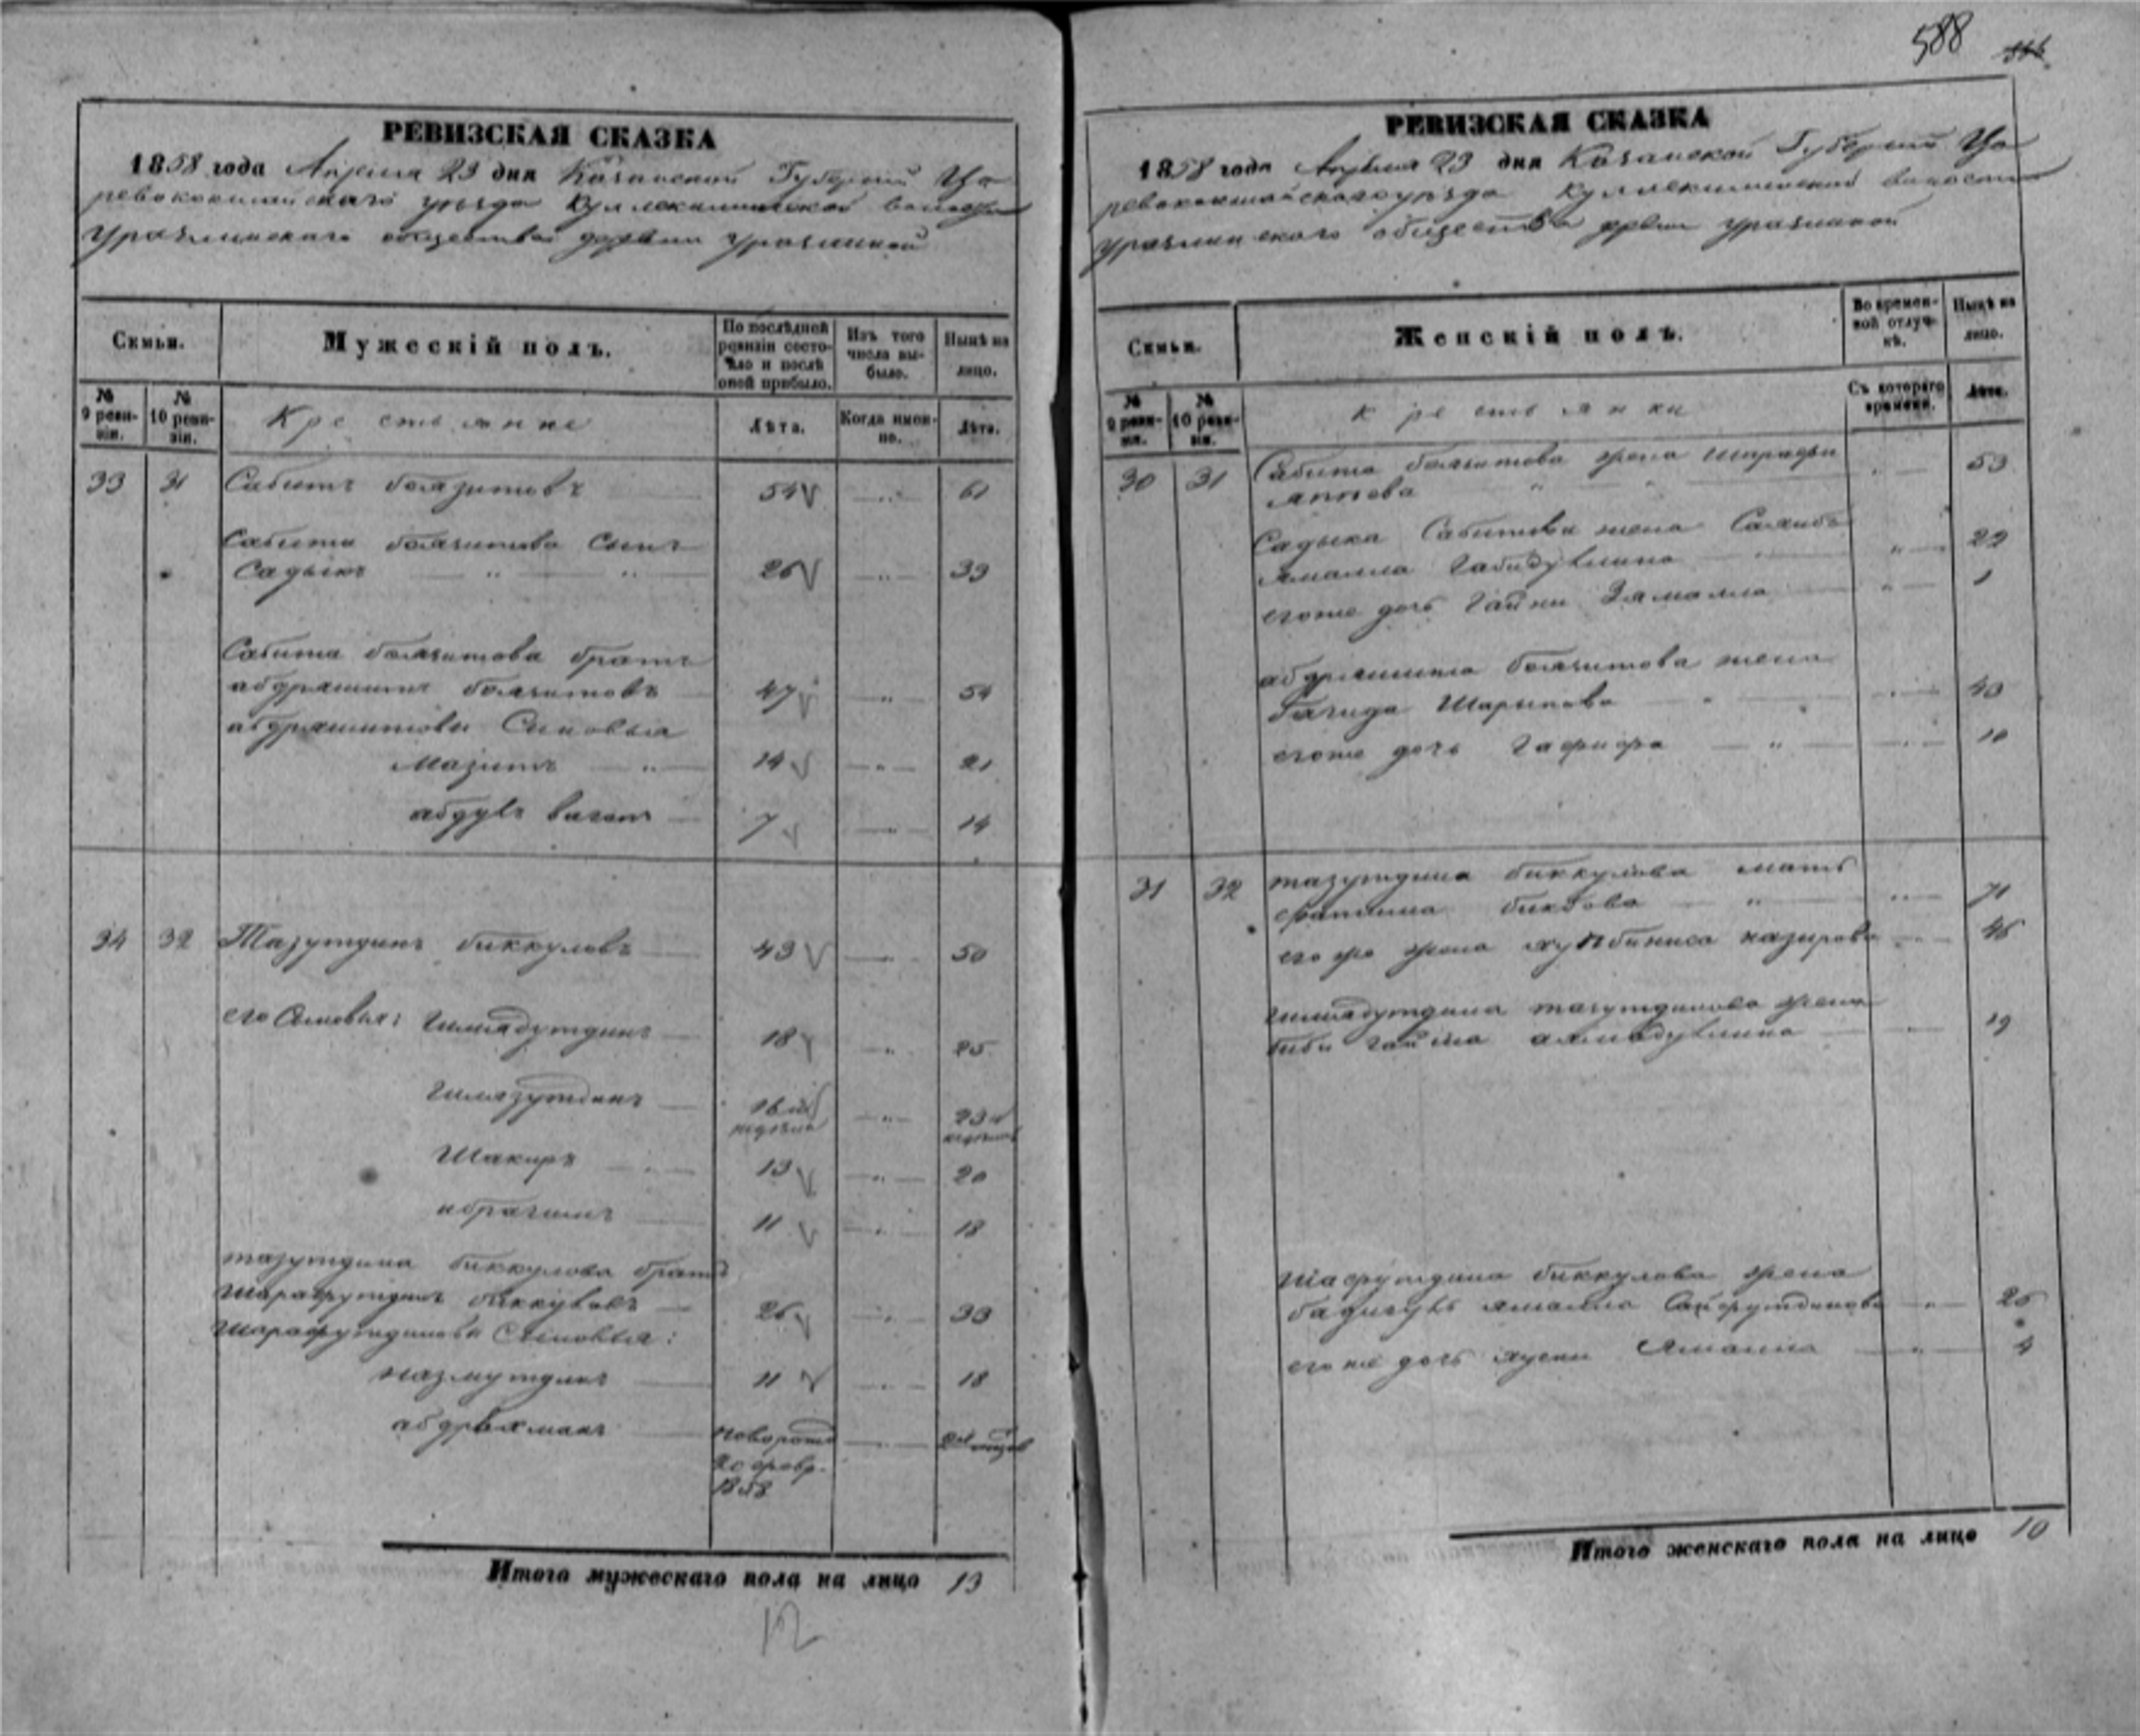 588
РЕВИЗСКАЯ СКАЗКА
1858 года Апреля 23 дня Казанской Губернии Ца
ревококшайскаго уѣзда Кулле волости
Уразлинскаго общества деревни Уразлиной
Семьи.
Мужескій полъ.
По послѣдней ревизіи состояло и послѣ оной прибыло.
Изъ того числа выбыло.
Нынѣ на лицо.
№ 9 ревизіи.
№ 10 ревизіи.
Крестьяне
Лѣта.
Когда именно.
Лѣта.
33 31 Сабитъ боязитовъ 54 61
Сабита боязитова Сынъ
Садыкъ 26 33
Сабита боязитова братъ
абдряшитъ боязитовъ 47 54
абдряшитовы Сыновья
Мазитъ 14 21
абдулъ вагапъ 7 14
34 32 Тазутдинъ биккуловъ 43 50
его Сыновья: Гимадутдинъ 18 25
Гилязутдинъ 16 23
Шакиръ 13 20
ибрагимъ 11 18
тазутдина биккулова братъ
Шарафутдинъ биккуловъ 26 33
Шарафутдиновы Сыновья:
назмутдинъ 11 18
абдрахманъ новорожд
20 февр.
1858
Итого мужескаго пола на лицо 13
12
РЕВИЗСКАЯ СКАЗКА
1858 года Апреля 23 дня Казанской Губернии Ца
ревококшайскаго уѣзда Кулле волости
Уразлинскаго общества дрвни Уразлиной
Семьи.
Женскій полъ.
Во временной отлучкѣ.
Нынѣ на лицо.
№ 9 ревизіи.
№ 10 ревизіи.
крестьянки
Съ котораго времени.
Лѣта.
30 31 Сабита боязитова жена Шарафи
Яппева 53
Садыка Сабитова жена
ямалла Габидуллина 22
егоже дочь Гайни Зямалла 1
абдряшита боязитова жена
Шарыпова 40
егоже дочь Гафифа 10
31 32 тазутдина биккулова мать
фатима 71
его же жена хубиниса назирова 46
гимадутдина тазутдинова жена
биби гайша 19
Шафутдина биккулова жена
ямалла Сайфутдинова 26
его же дочь хусни Ямалла 4
Итого женскаго пола на лицо 10